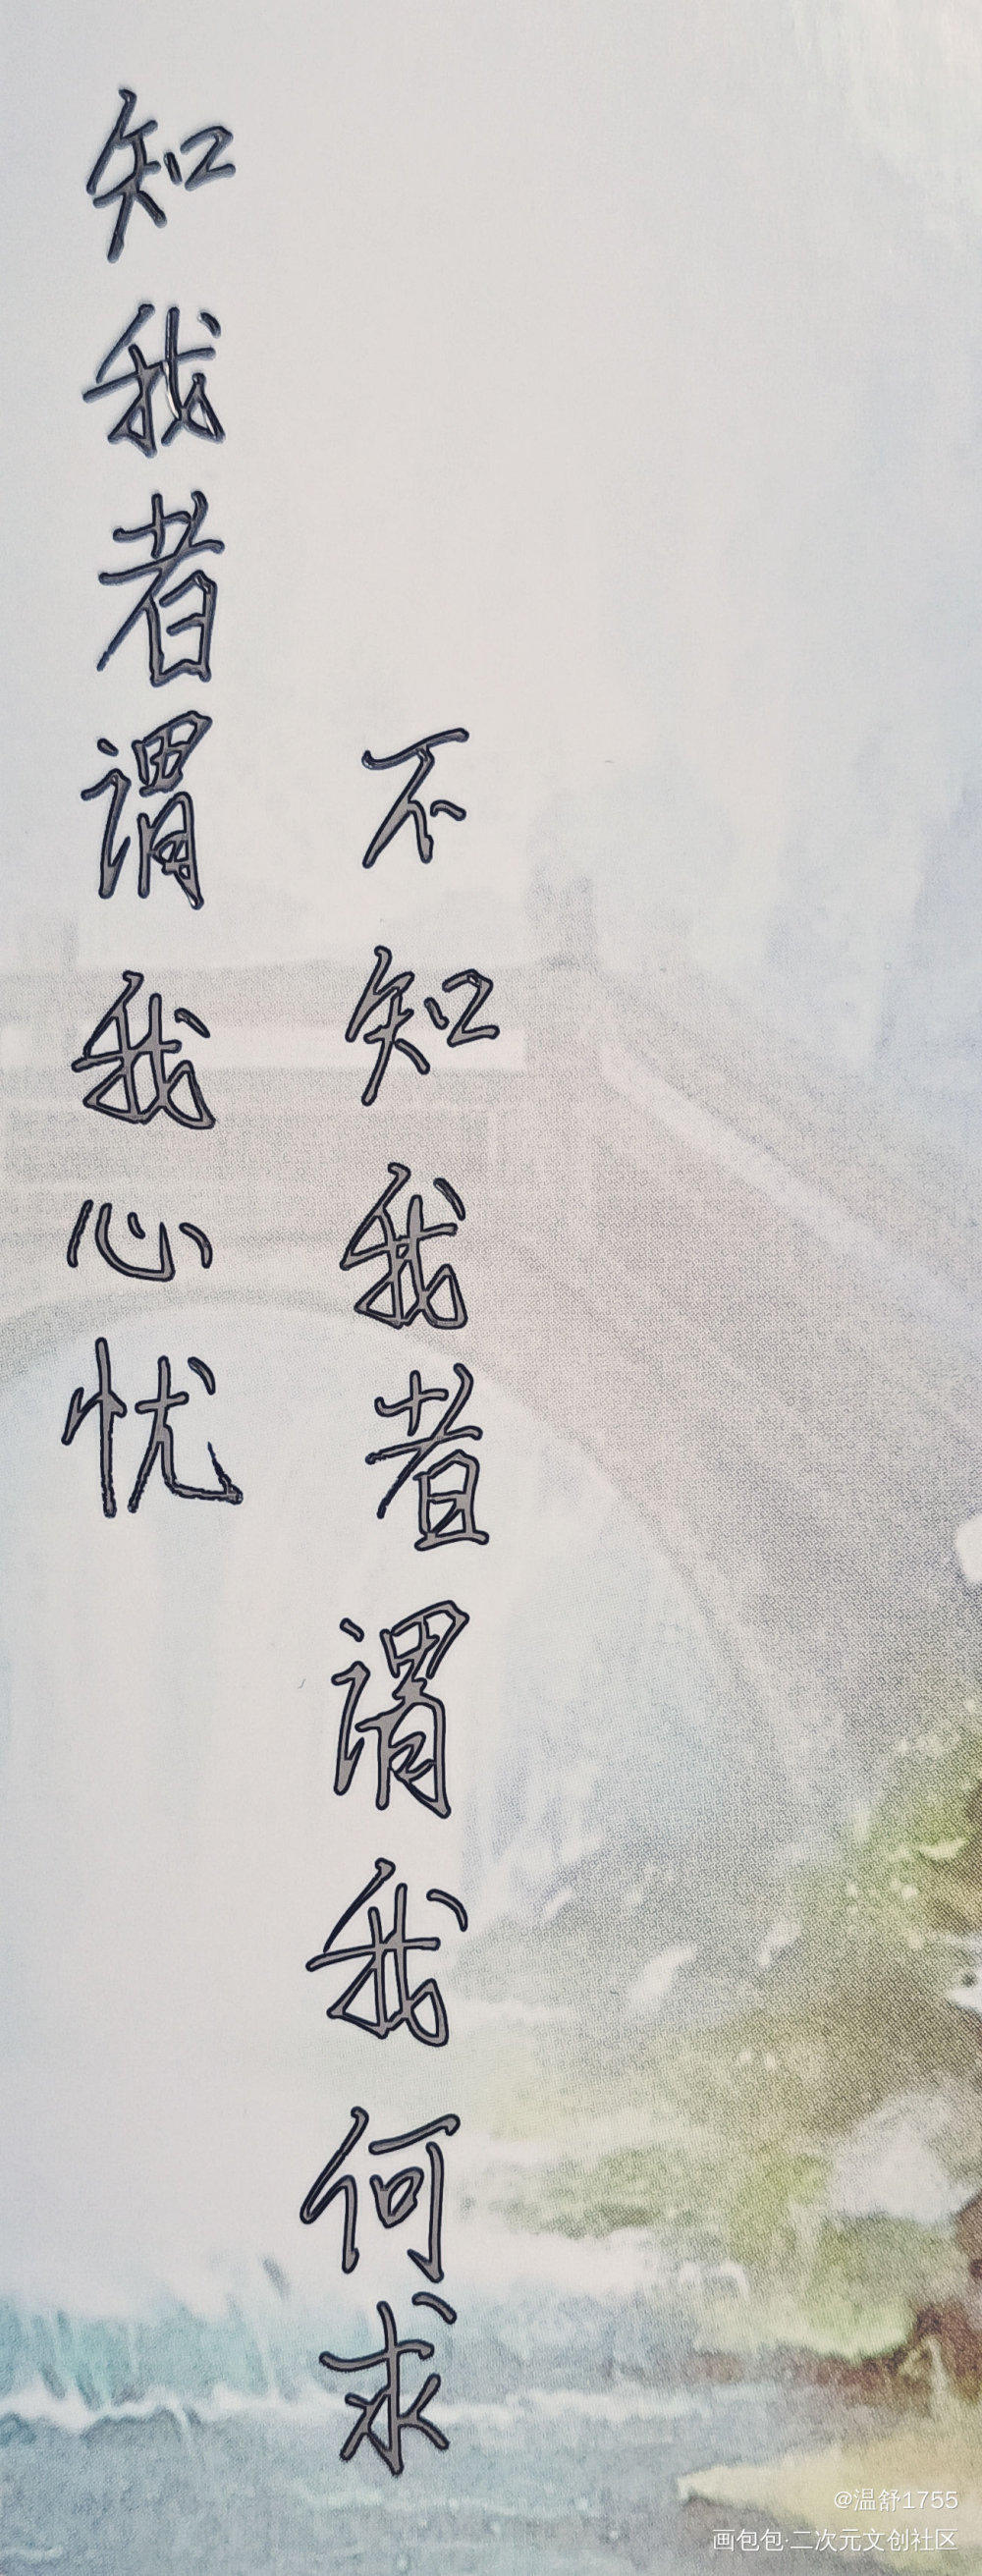 知我者谓我心忧
不知我者谓我何求
@温舒1755
画包包·二次元文创社区